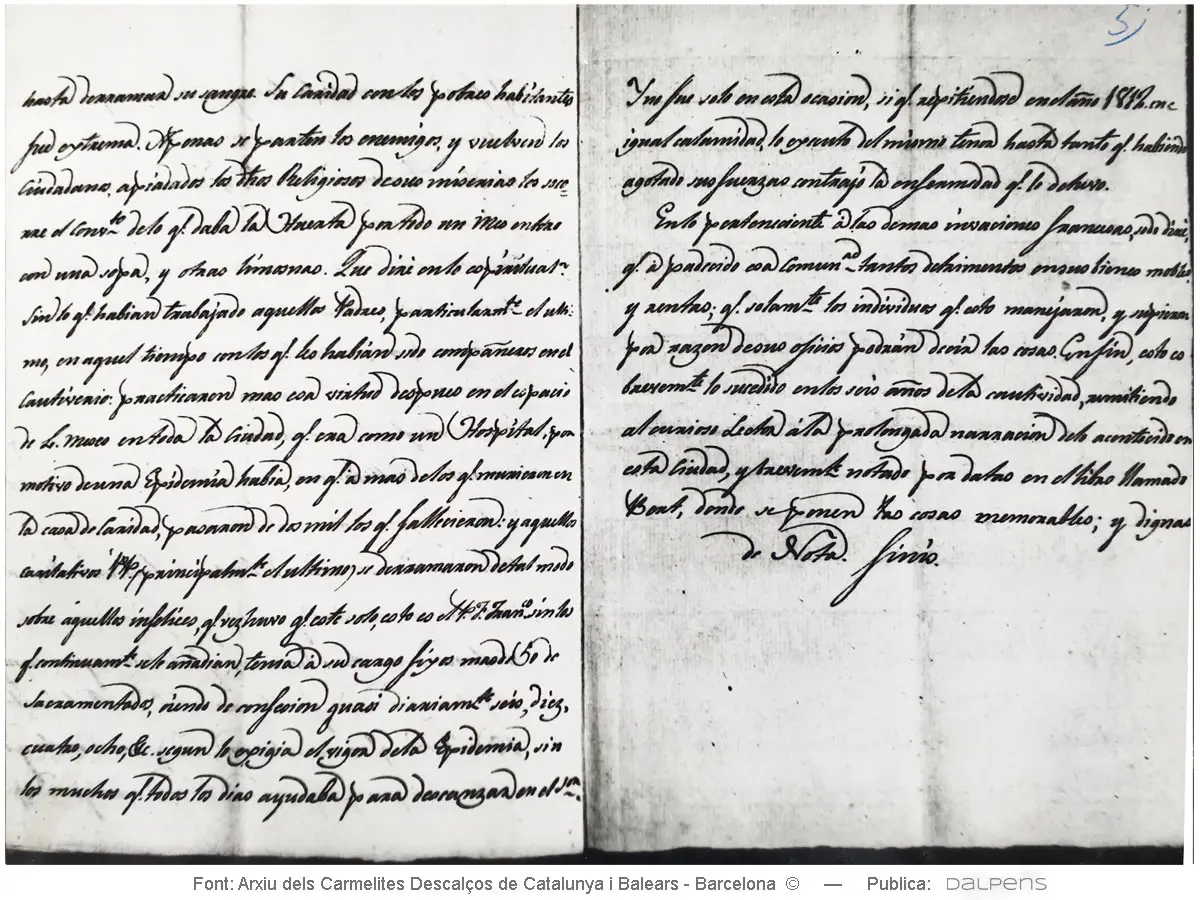 hasta derramar su sangre. Su Caridad con los pobres habitantes
fué extrema. Apenas se parten los enemigos, y vuelven los
Ciudadanos, apiadados los dhos Religiosos de sus miserias les soco=
rre el Convto de lo q. daba la Huerta por todo un Mes entero
con una sopa, y otras limosnas. Que diré en lo espiritual?
Sin lo q. habian trabajado aquellos Padres, particularmte el ulti-
mo, en aquel tiempo con los q. les habian sido compañeros en el
Cautiverio: practicaron mas esa virtud despues en el espacio
de meses en toda la Ciudad, q. era como un Hospital, por
motivo de una Epidemia habia, en q. à mas de los q. murieron en
la casa de Caridad, pasaron de dos mil los q. fallecieron: y aquellos
caritativos PP. principalmte el ultimo, se derramaron de tal modo
sobre aquellos infelices, q. vez huvo q. este solo, esto es el P. F. Franco sin los
q. continuamte se le añadian, tenia à su cargo fixos mas de 50 de
Sacramentados, siendo de confesion quasi diariamte seis, diez,
cuatro, ocho, &c. segun lo exigia el vigor de la Epidemia, sin
los muchos q. todos los dias ayudaba para descanzar en el Sor.
5)
Y no fue solo en esta ocasion, si q. repitiendose en el año 1812. en
igual calamidad, lo executo del mismo tenor hasta tanto q. habiendo
agotado sus fuerzas contrajo la enfermidad q. lo detuvo.
En lo perteneciente à las demas invaciones francesas, solo diré,
q. à padecido esa Comunad tantos detrimentos en sus bienes mobles
y rentas; q. solamte los individuos q. esto manejaron, y supieron
por razon de sus oficios podrán decir las cosas. En fin, esto es
brevemte lo sucedido en los seis años de la cautividad, remitiendo
al curioso Lector à la prolongada narracion de lo acontecido en
esta Ciudad, y brevemte notado por datas en el libro llamado
donde se ponen las cosas memorables; y dignas
de Nota. Finis.
Font: Arxiu dels Carmelites Descalços de Catalunya i Balears - Barcelona © — Publica: DALPENS